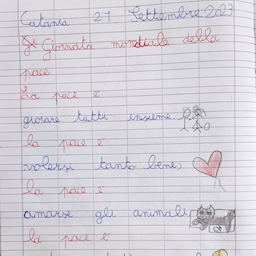 Catania 27 Settembre 2023
Giornata mondiale della
pace
La pace è
giocare tutti insieme
la pace è
volersi tanto bene,
la pace è
amarse gli animali
la pace è